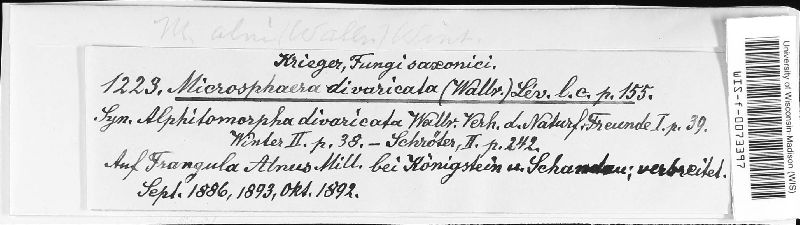 M. alni (Wallr.) Wint.
Krieger, Fungi saxonici.
1223. Microsphaera divaricata (Wallr.) Lév. l. c. p. 155.
Syn. Alphitomorpha divaricata Wallr. Verh. d. Naturf. Freunde I. p. 39.
Winter II. p. 38. – Schröter, II. p. 242.
Auf Frangula Alnus Mill. bei Königstein u. Schandau; verbreitet.
Sept. 1886, 1893, Okt. 1892.
University of Wisconsin Madison (WIS)
WIS-f-0073397